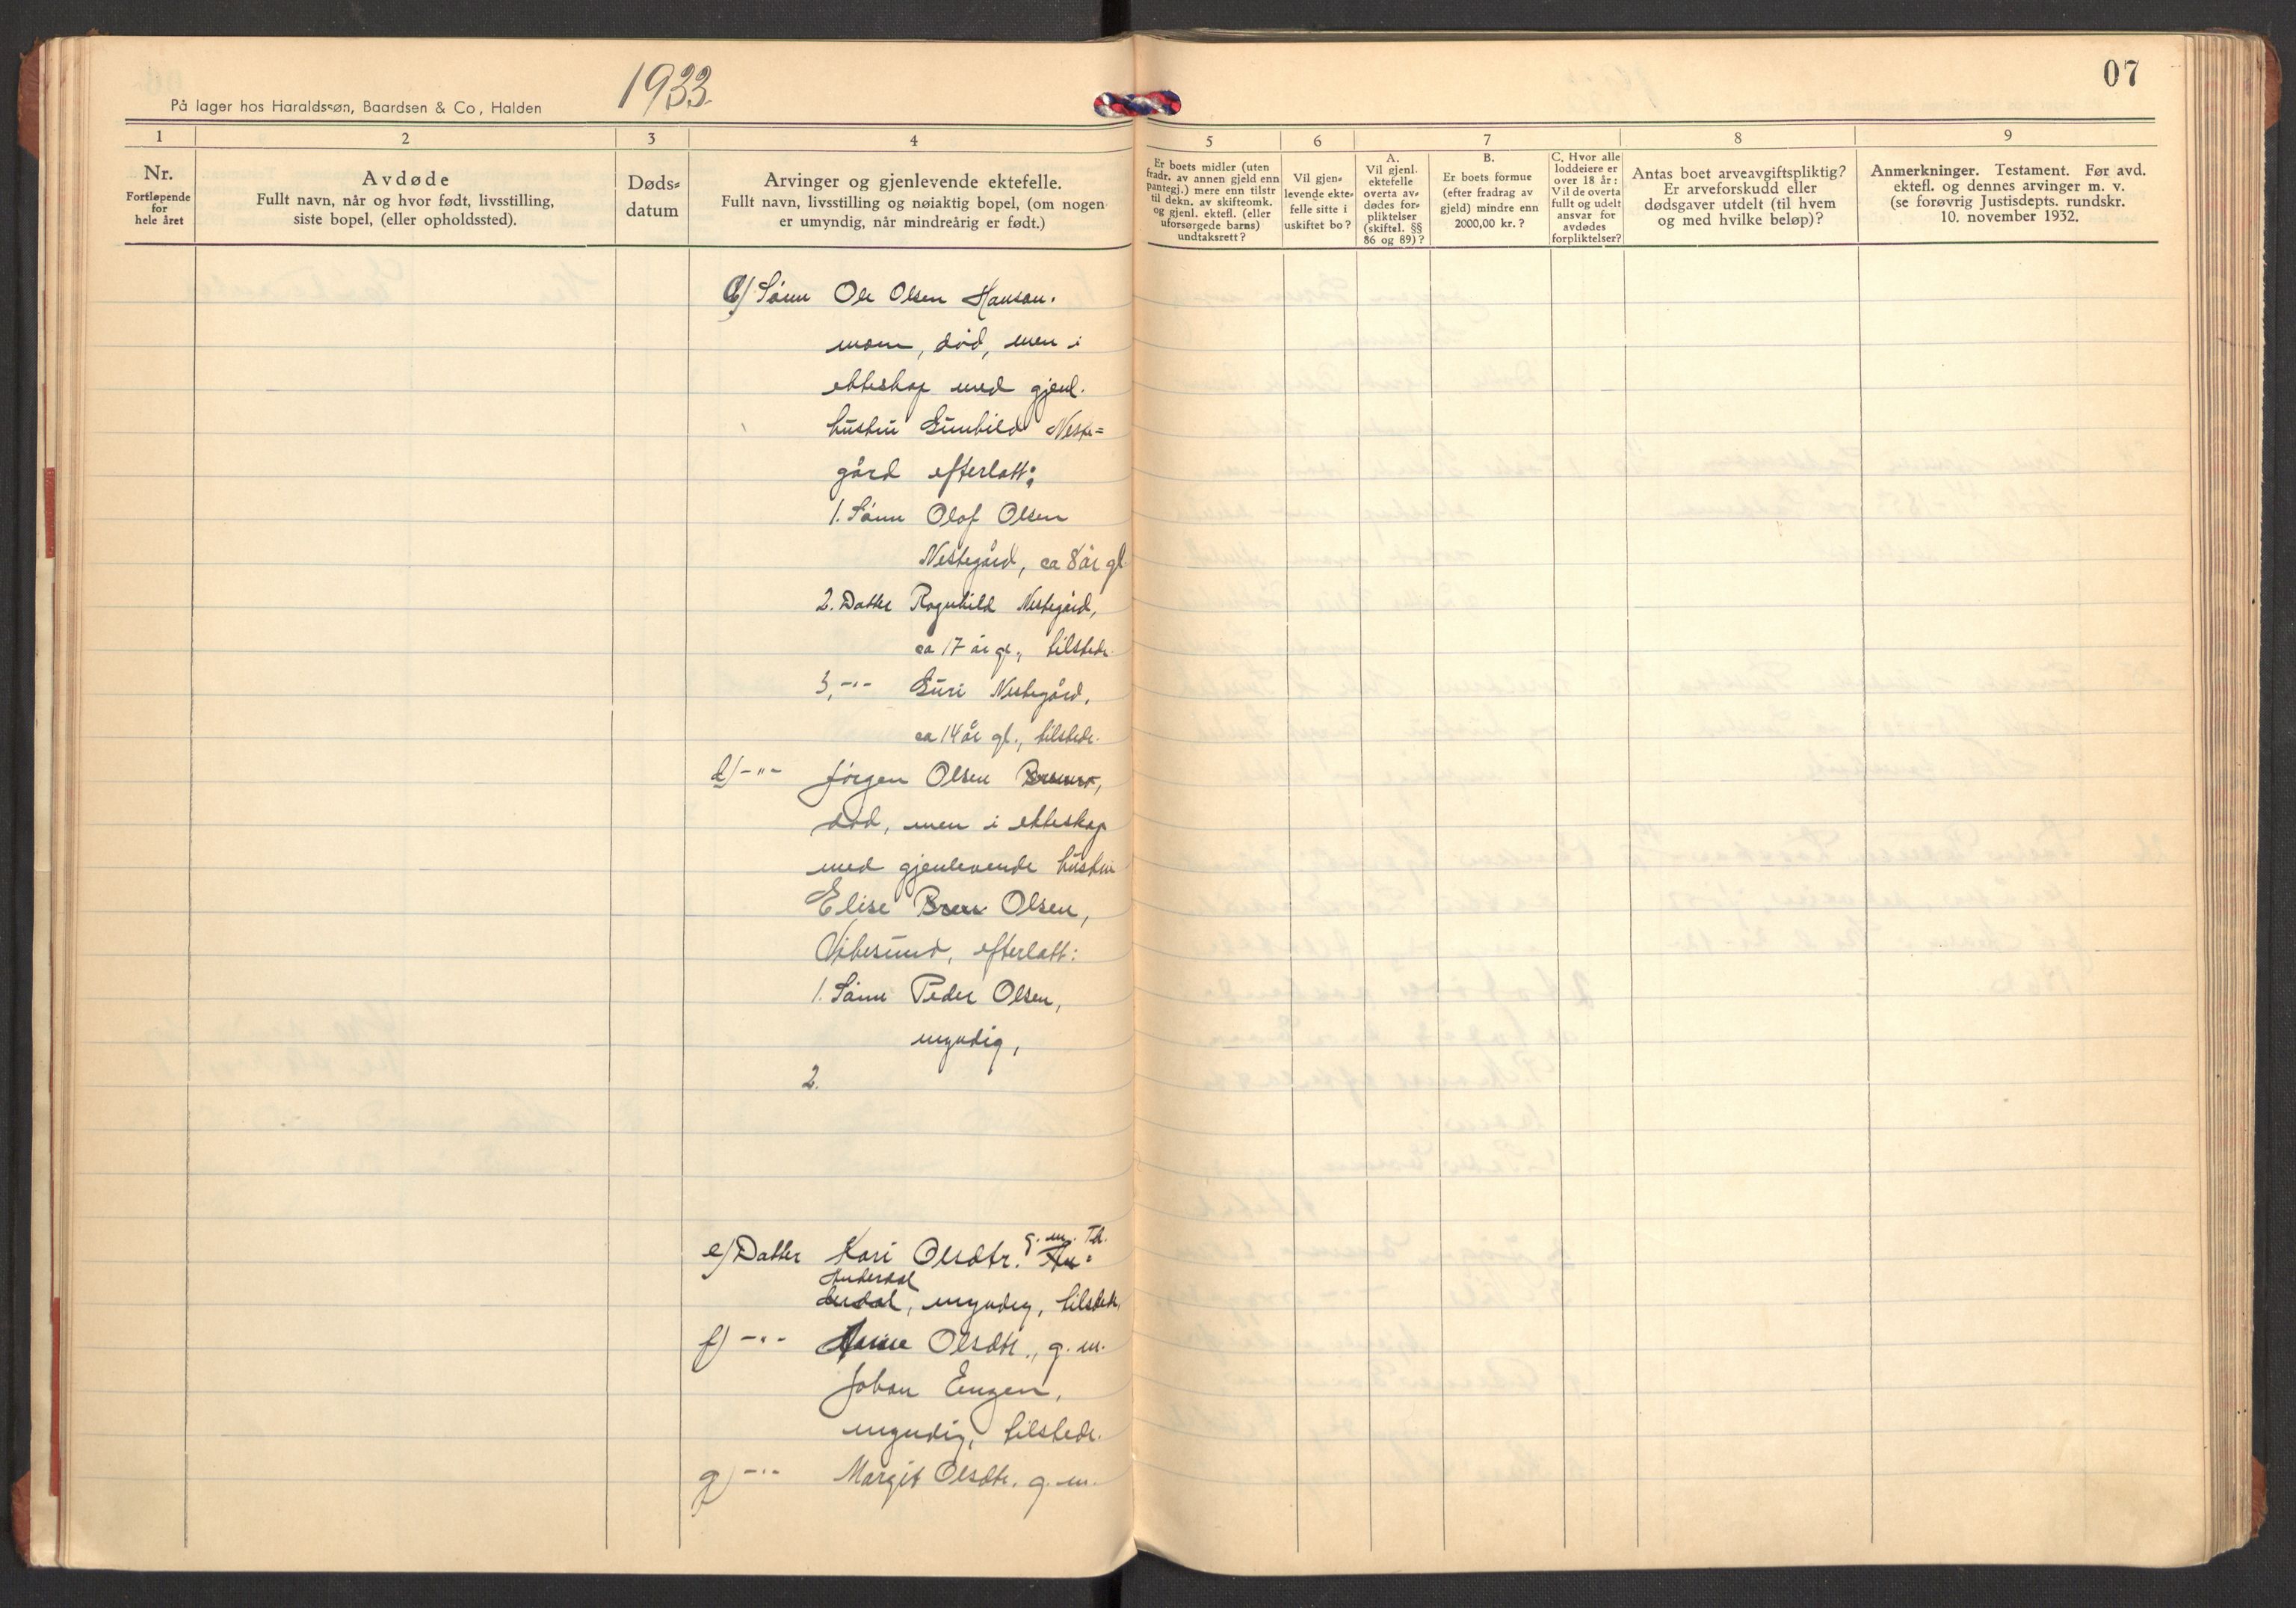 På lager hos Haraldssøn, Baardsen & Co, Halden
1933.
07
1
2
3
4
5
6
7
8
9
Nr.
Fortløpende
for
hele året
Avdøde
Fullt navn, når og hvor født, livsstilling,
siste bopel, (eller opholdssted).
Døds-
datum
Arvinger og gjenlevende ektefelle.
Fullt navn, livsstilling og nøiaktig bopel, (om nogen
er umyndig, når mindreårig er født.)
Er boets midler (uten
fradr. av annen gjeld enn
pantegj.) mere enn tilstr
til dekn. av skifteomk.
og gjenl. ektefl. (eller
uforsørgede barns)
undtaksrett?
Vil gjen-
levende ekte-
felle sitte i
uskiftet bo?
A.
Vil gjenl.
ektefelle
overta av-
dødes for-
pliktelser
(skiftel. §§
86 og 89)?
B.
Er boets formue
(efter fradrag av
gjeld) mindre enn
2000,00 kr.?
C. Hvor alle
loddeiere er
over 18 år:
Vil de overta
fullt og udelt
ansvar for
avdødes
forpliktelser?
Antas boet arveavgiftspliktig?
Er arveforskudd eller
dødsgaver utdelt (til hvem
og med hvilke beløp)?
Anmerkninger. Testament. Før avd.
ektefl. og dennes arvinger m. v.
(se forøvrig Justisdepts. rundskr.
10. november 1932.
Sønn Ole Olsen Hanson.
død, men i
ekteskap med gjenl.
hustru Gunhild Neste=
gård efterlatt:
1. Sønn Olof Olsen
Nestegård, ca 8 år gl
2. Datter Ragnhild Nestegård,
ca 17 år gl., tilstede.
3. -"- Guri Nestegård,
ca 14 år gl., tilstede.
d) -"- Jørgen Olsen
død, men i ekteskap
med gjenlevende hustru
Elise Olsen,
efterlatt:
1. Sønn Peder Olsen,
myndig,
2.
e) Datter Kari Olsdtr. g. m.
myndig, tilstede.
f) -"- Olsdtr., g. m.
Johan Engen,
myndig, tilstede.
g) -"- Margit Olsdtr. g. m.